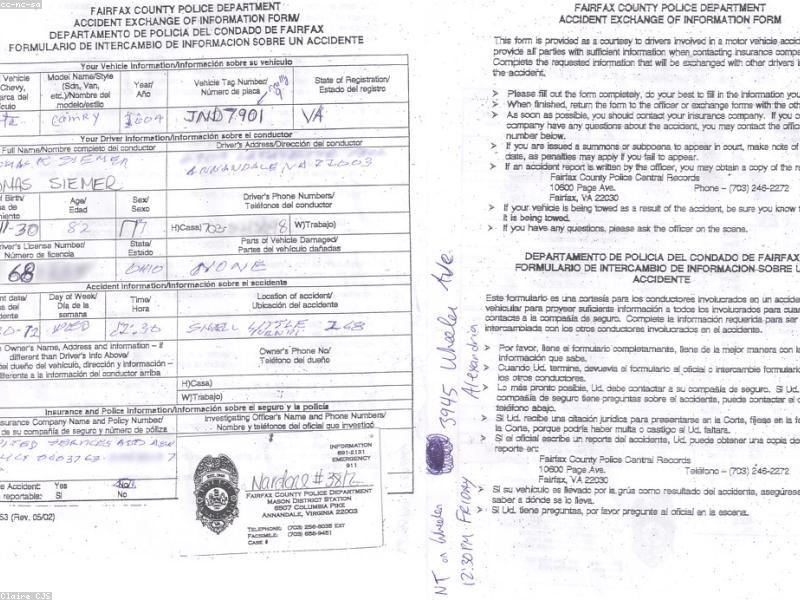 cc-nc-sa
FAIRFAX COUNTY POLICE DEPARTMENT
ACCIDENT EXCHANGE OF INFORMATION FORM/
DEPARTAMENTO DE POLICIA DEL CONDADO DE FAIRFAX
FORMULARIO DE INTERCAMBIO DE INFORMACION SOBRE UN ACCIDENTE
Your Vehicle Information/Información sobre su vehículo
Vehicle
Chevy,
Model Name/Style
(Sdn, Van,
etc.)/Nombre del
modelo/estilo
Year/
Año
Vehicle Tag Number/
Número de placa
State of Registration/
Estado del registro
CAMRY
2004
JND7901
VA
Your Driver Information/Información sobre el conductor
Full Name/Nombre completo del conductor
Driver's Address/Dirección del conductor
SIEMER
ANNANDALE VA 22003
SIEMER
Age/
Edad
Sex/
Sexo
Driver's Phone Numbers/
Teléfonos del conductor
-30
82
M
H(Casa) 703
8
W(Trabajo)
Driver's License Number/
Número de licencia
State/
Estado
Parts of Vehicle Damaged/
Partes del vehículo dañadas
68
OHIO
NONE
Accident Information/Información sobre el accidente
Day of Week/
Día de la
semana
Time/
Hora
Location of accident/
Ubicación del accidente
WED
12:30
268
Owner's Name, Address and Information – if
different than Driver's Info Above/
del dueño del vehículo, dirección y información –
diferente a la información del conductor arriba
Owner's Phone No/
Teléfono del dueño
H)Casa)
W)Trabajo)
Insurance and Police Information/Información sobre el seguro y la policía
Insurance Company Name and Policy Number/
de su compañía de seguro y número de póliza
Investigating Officer's Name and Phone Numbers/
Nombre y teléfonos del oficial que investigó
SERVICES AUTO
7
INFORMATION
691-2131
EMERGENCY
911
Nardone #3812
FAIRFAX COUNTY POLICE DEPARTMENT
MASON DISTRICT STATION
6507 COLUMBIA PIKE
ANNANDALE, VIRGINIA 22003
TELEPHONE: (703) 256-8035 EXT
FACSIMILE:
CASE #
Accident:
reportable:
Yes
Si
No
No
53 (Rev. 05/02)
Claire CJS
FAIRFAX COUNTY POLICE DEPARTMENT
ACCIDENT EXCHANGE OF INFORMATION FORM
This form is provided as a courtesy to drivers involved in a motor vehicle
provide all parties with sufficient information when contacting insurance
Complete the requested information that will be exchanged with other drivers
the accident.
➤ Please fill out the form completely, do your best to fill in the information
➤ When finished, return the form to the officer or exchange forms with the
➤ As soon as possible, you should contact your insurance company. If
company have any questions about the accident, you may contact the
number below.
➤ If you are issued a summons or subpoena to appear in court, make note of
date, as penalties may apply if you fail to appear.
➤ If an accident report is written by the officer, you may obtain a copy of the
Fairfax County Police Central Records
10600 Page Ave. Phone – (703) 246-2272
Fairfax, VA 22030
➤ If your vehicle is being towed as a result of the accident, be sure you know
it is being towed.
➤ If you have any questions, please ask the officer on the scene.
DEPARTAMENTO DE POLICIA DEL CONDADO DE FAIRFAX
FORMULARIO DE INTERCAMBIO DE INFORMACION SOBRE UN
ACCIDENTE
Este formulario es una cortesía para los conductores involucrados en un
vehicular para proveer suficiente información a todos los involucrados para
contacte a la compañía de seguro. Complete la información requerida para ser
intercambiada con los otros conductores involucrados en el accidente.
➤ Por favor, llene el formulario completamente, llene de la mejor manera con
información que sabe.
➤ Cuando Ud. termine, devuelva el formulario al oficial o intercambie
los otros conductores.
➤ Lo más pronto posible, Ud. debe contactar a su compañía de seguro. Si
compañía de seguro tiene preguntas sobre el accidente, puede contactar
teléfono abajo.
➤ Si Ud. recibe una citación jurídica para presentarse en la Corte, fíjese en la
la Corte, porque podría haber multa o castigo si Ud. faltara.
➤ Si el oficial escribe un reporte del accidente, Ud. puede obtener una copia
reporte en:
Fairfax County Police Central Records
10600 Page Ave. Teléfono – (703) 246-2272
Fairfax, VA 22030
➤ Si su vehículo es llevado por la grúa como resultado del accidente,
saber a dónde se lo lleva.
➤ Si Ud. tiene preguntas, por favor pregunte al oficial en la escena.
3945 Wheeler Ave
Alexandria
NT on Wheeler
12:30PM Friday